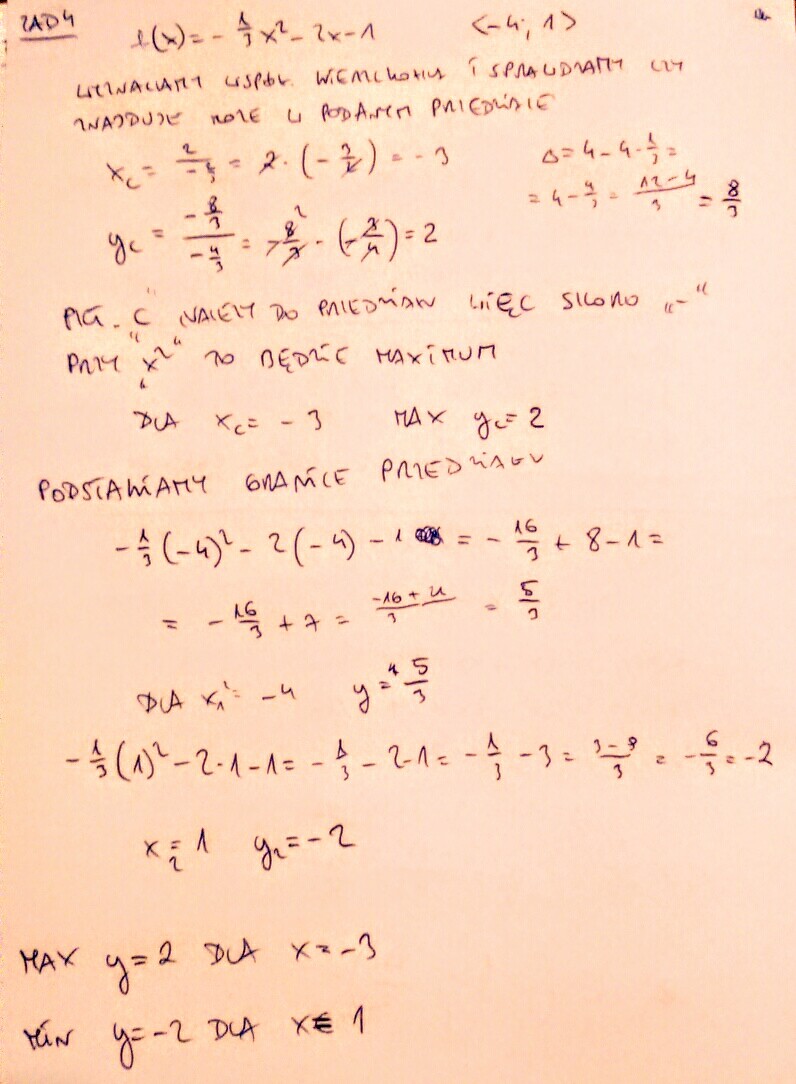 ZAD 4 f(x) = -1/3 x² - 2x - 1 <-4; 1>
WYZNACZAMY WSPÓŁ. WIERZCHOŁKA I SPRAWDZAMY CZY
ZNAJDUJE W PODANYM PRZEDZIALE
x_c = 2/(-2/3) = 2 · (-3/2) = -3 Δ = 4 - 4 · 1/3 =
= 4 - 4/3 = (12-4)/3 = 8/3
y_c = (-8/3)/(-4/3) = -8/3 · (-3/4) = 2
PKT. "C" NALEŻY DO PRZEDZIAŁU WIĘC SKORO „-“
PRZY „x²“ TO BĘDZIE MAXIMUM
DLA x_c = -3 MAX y_c = 2
PODSTAWIAMY GRANICE PRZEDZIAŁU
-1/3 (-4)² - 2(-4) - 1 = -16/3 + 8 - 1 =
= -16/3 + 7 = (-16+21)/3 = 5/3
DLA x₁ = -4 y = 5/3
-1/3 (1)² - 2·1 - 1 = -1/3 - 2 - 1 = -1/3 - 3 = (3-9)/3 = -6/3 = -2
x₂ = 1 y₂ = -2
MAX y = 2 DLA x = -3
MIN y = -2 DLA x = 1